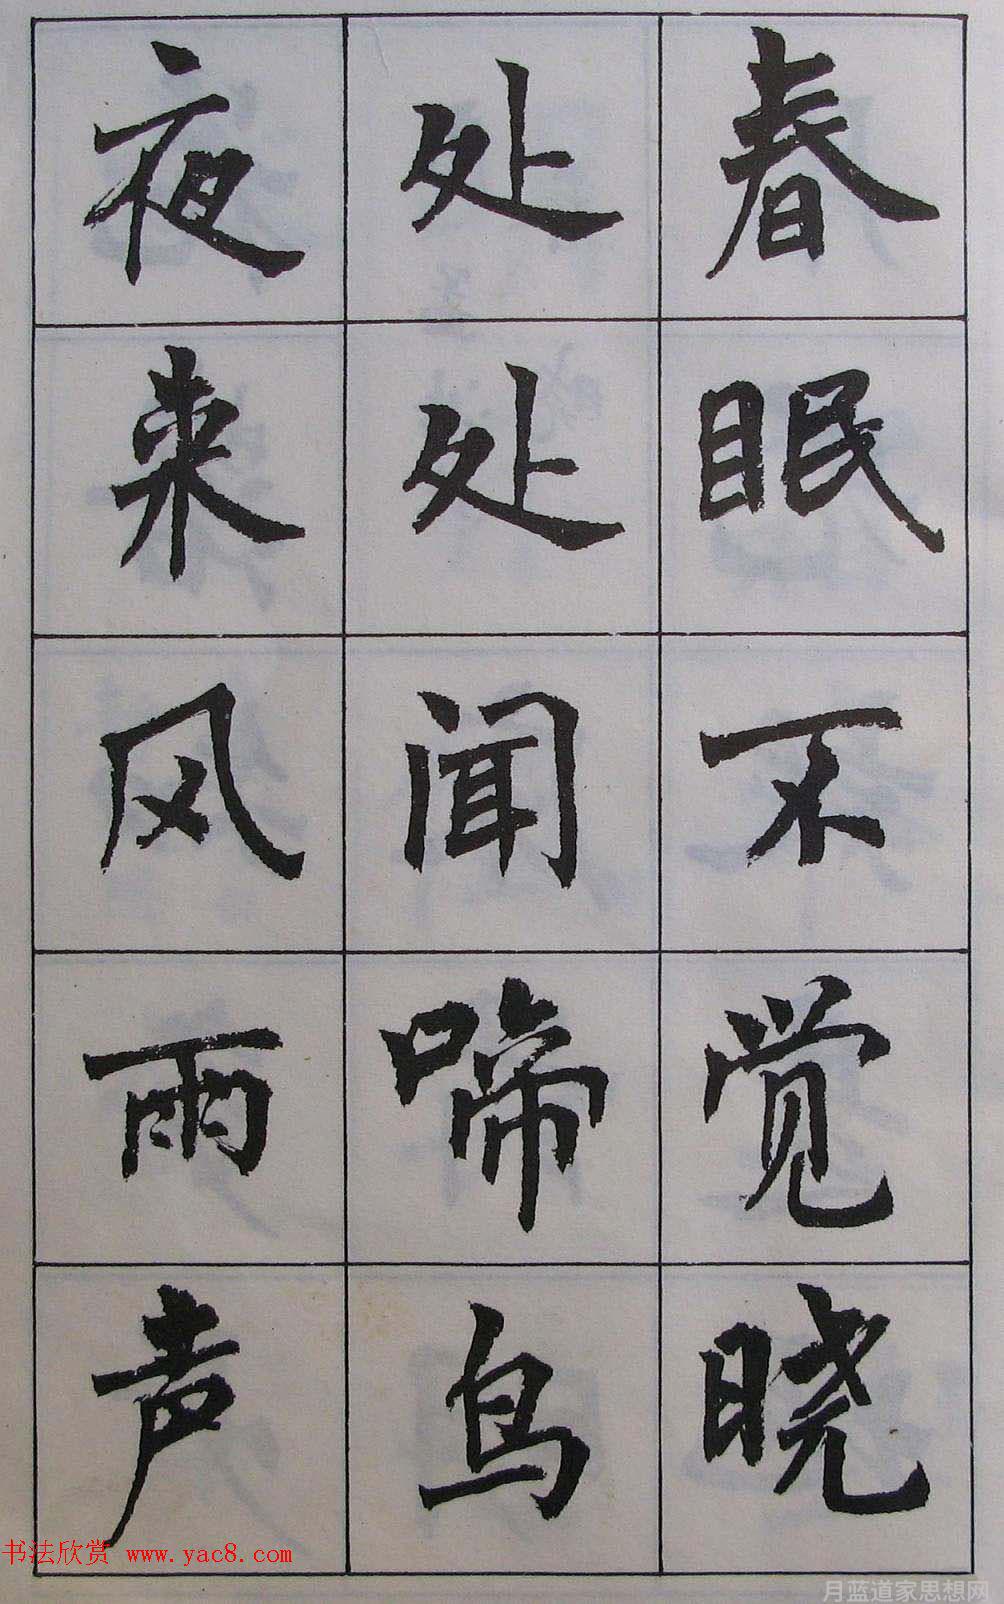 春眠不觉晓
处处闻啼鸟
夜来风雨声
书法欣赏 www.yac8.com
月蓝道家思想网